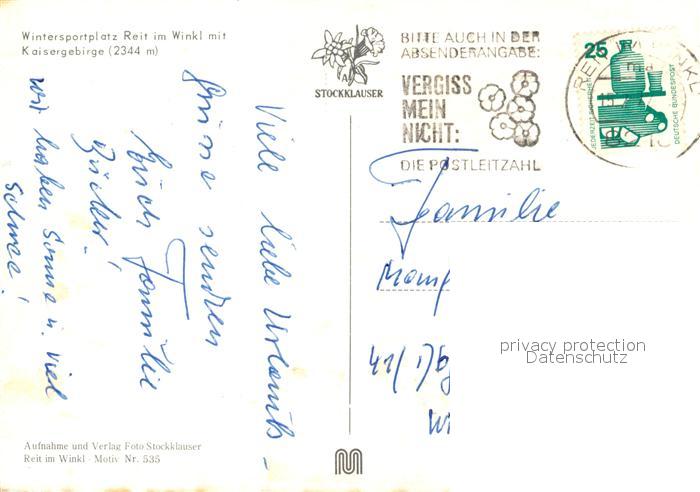 Wintersportplatz Reit im Winkl mit
Kaisergebirge (2344 m)
STOCKKLAUSER
BITTE AUCH IN DER
ABSENDERANGABE:
VERGISS
MEIN
NICHT:
DIE POSTLEITZAHL
25
JEDERZEIT SICHERHEIT
DEUTSCHE BUNDESPOST
Viele liebe Urlaubs-
grüsse senden
Euch Familie
Wir haben Sonne u. viel
Schnee!
Familie
privacy protection
Datenschutz
Aufnahme und Verlag Foto Stockklauser
Reit im Winkl · Motiv Nr. 535